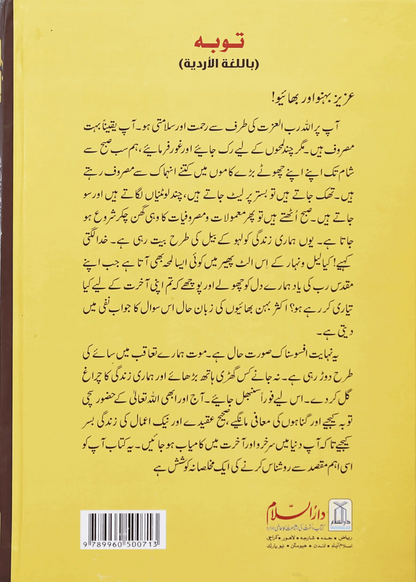 توبه
(باللغة الأردية)
عزیز بہنو اور بھائیو!
آپ پر اللہ رب العزت کی طرف سے رحمت اور سلامتی ہو۔ آپ یقیناً بہت
مصروف ہیں۔ مگر چند لمحوں کے لیے رک جائیے اور غور فرمائیے، ہم سب صبح سے
شام تک اپنے اپنے چھوٹے بڑے کاموں میں کتنے انہماک سے مصروف رہتے
ہیں۔ تھک جاتے ہیں تو بستر پر لیٹ جاتے ہیں، چند لوٹنیاں لگاتے ہیں اور سو
جاتے ہیں۔ صبح اُٹھتے ہیں تو پھر معمولات و مصروفیات کا وہی گھن چکر شروع ہو
جاتا ہے۔ یوں ہماری زندگی کولہو کے بیل کی طرح بیت رہی ہے۔ خدا لگتی
کہیے! کیا لیل و نہار کے اس الٹ پھیر میں کوئی ایسا لمحہ بھی آتا ہے جب اپنے
مقدس رب کی یاد ہمارے دل کو چھولے اور پوچھے کہ تم اپنی آخرت کے لیے کیا
تیاری کر رہے ہو؟ اکثر بہن بھائیوں کی زبان حال اس سوال کا جواب نفی میں
دیتی ہے۔
یہ نہایت افسوسناک صورت حال ہے۔ موت ہمارے تعاقب میں سائے کی
طرح دوڑ رہی ہے۔ نہ جانے کس گھڑی ہاتھ بڑھائے اور ہماری زندگی کا چراغ
گل کر دے۔ اس لیے فوراً سنبھل جائیے۔ آج اور ابھی اللہ تعالیٰ کے حضور سچی
توبہ کیجیے اور گناہوں کی معافی مانگیے، صحیح عقیدے اور نیک اعمال کی زندگی بسر
کیجیے تاکہ آپ دنیا میں سرخرو اور آخرت میں کامیاب ہو جائیں۔ یہ کتاب آپ کو
اسی اہم مقصد سے روشناس کرنے کی ایک مخلصانہ کوشش ہے
دارالسلام
کتاب و سنت کی اشاعت کا عالمی ادارہ
ریاض • جدہ • شارجہ • لاہور • کراچی
اسلام آباد • لندن • ہیوسٹن • نیو یارک
9 789960 500713